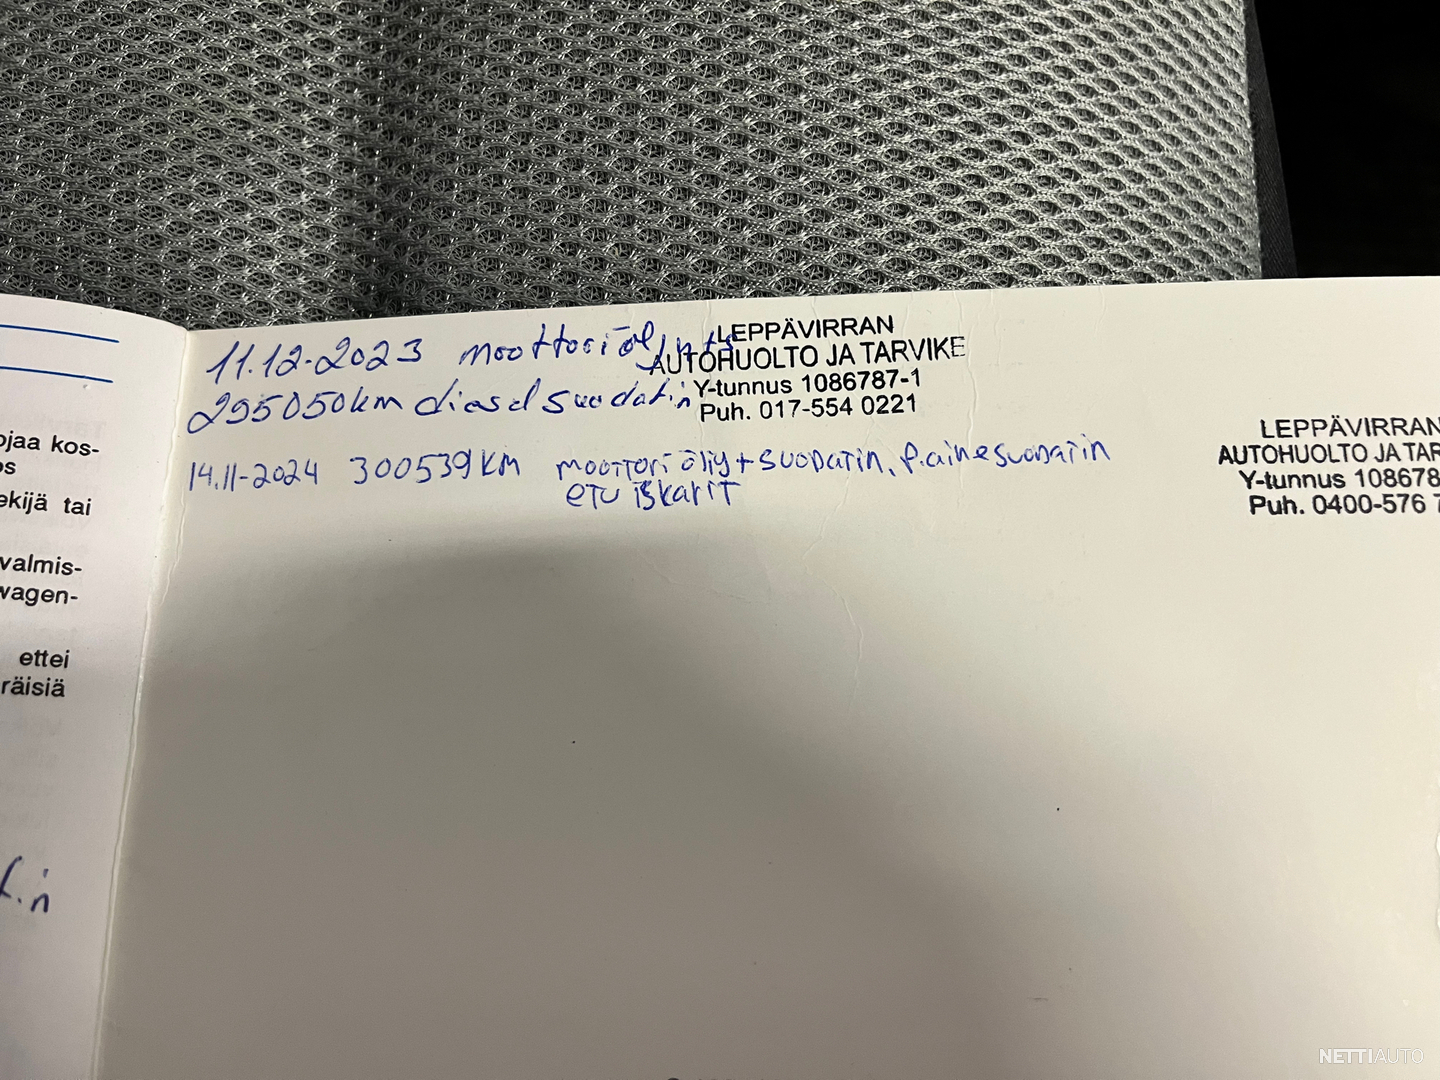 ojaa kos-
os
ekijä tai
valmis-
wagen-
ettei
räisiä
11.12-2023 moottoriöljy+s
295050km diesel suodatin
LEPPÄVIRRAN
AUTOHUOLTO JA TARVIKE
Y-tunnus 1086787-1
Puh. 017-554 0221
14.11-2024 300539km moottori öljy+suodatin, P.ainesuodatin
etu iskarit
LEPPÄVIRRAN
AUTOHUOLTO JA TAR
Y-tunnus 108678
Puh. 0400-576 7
NETTIAUTO